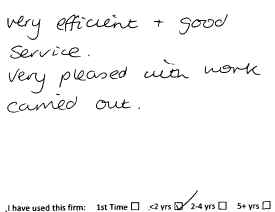 very efficient + good
service.
very pleased with work
carried out.
I have used this firm: 1st Time ☐ <2 yrs ☑ 2-4 yrs ☐ 5+ yrs ☐